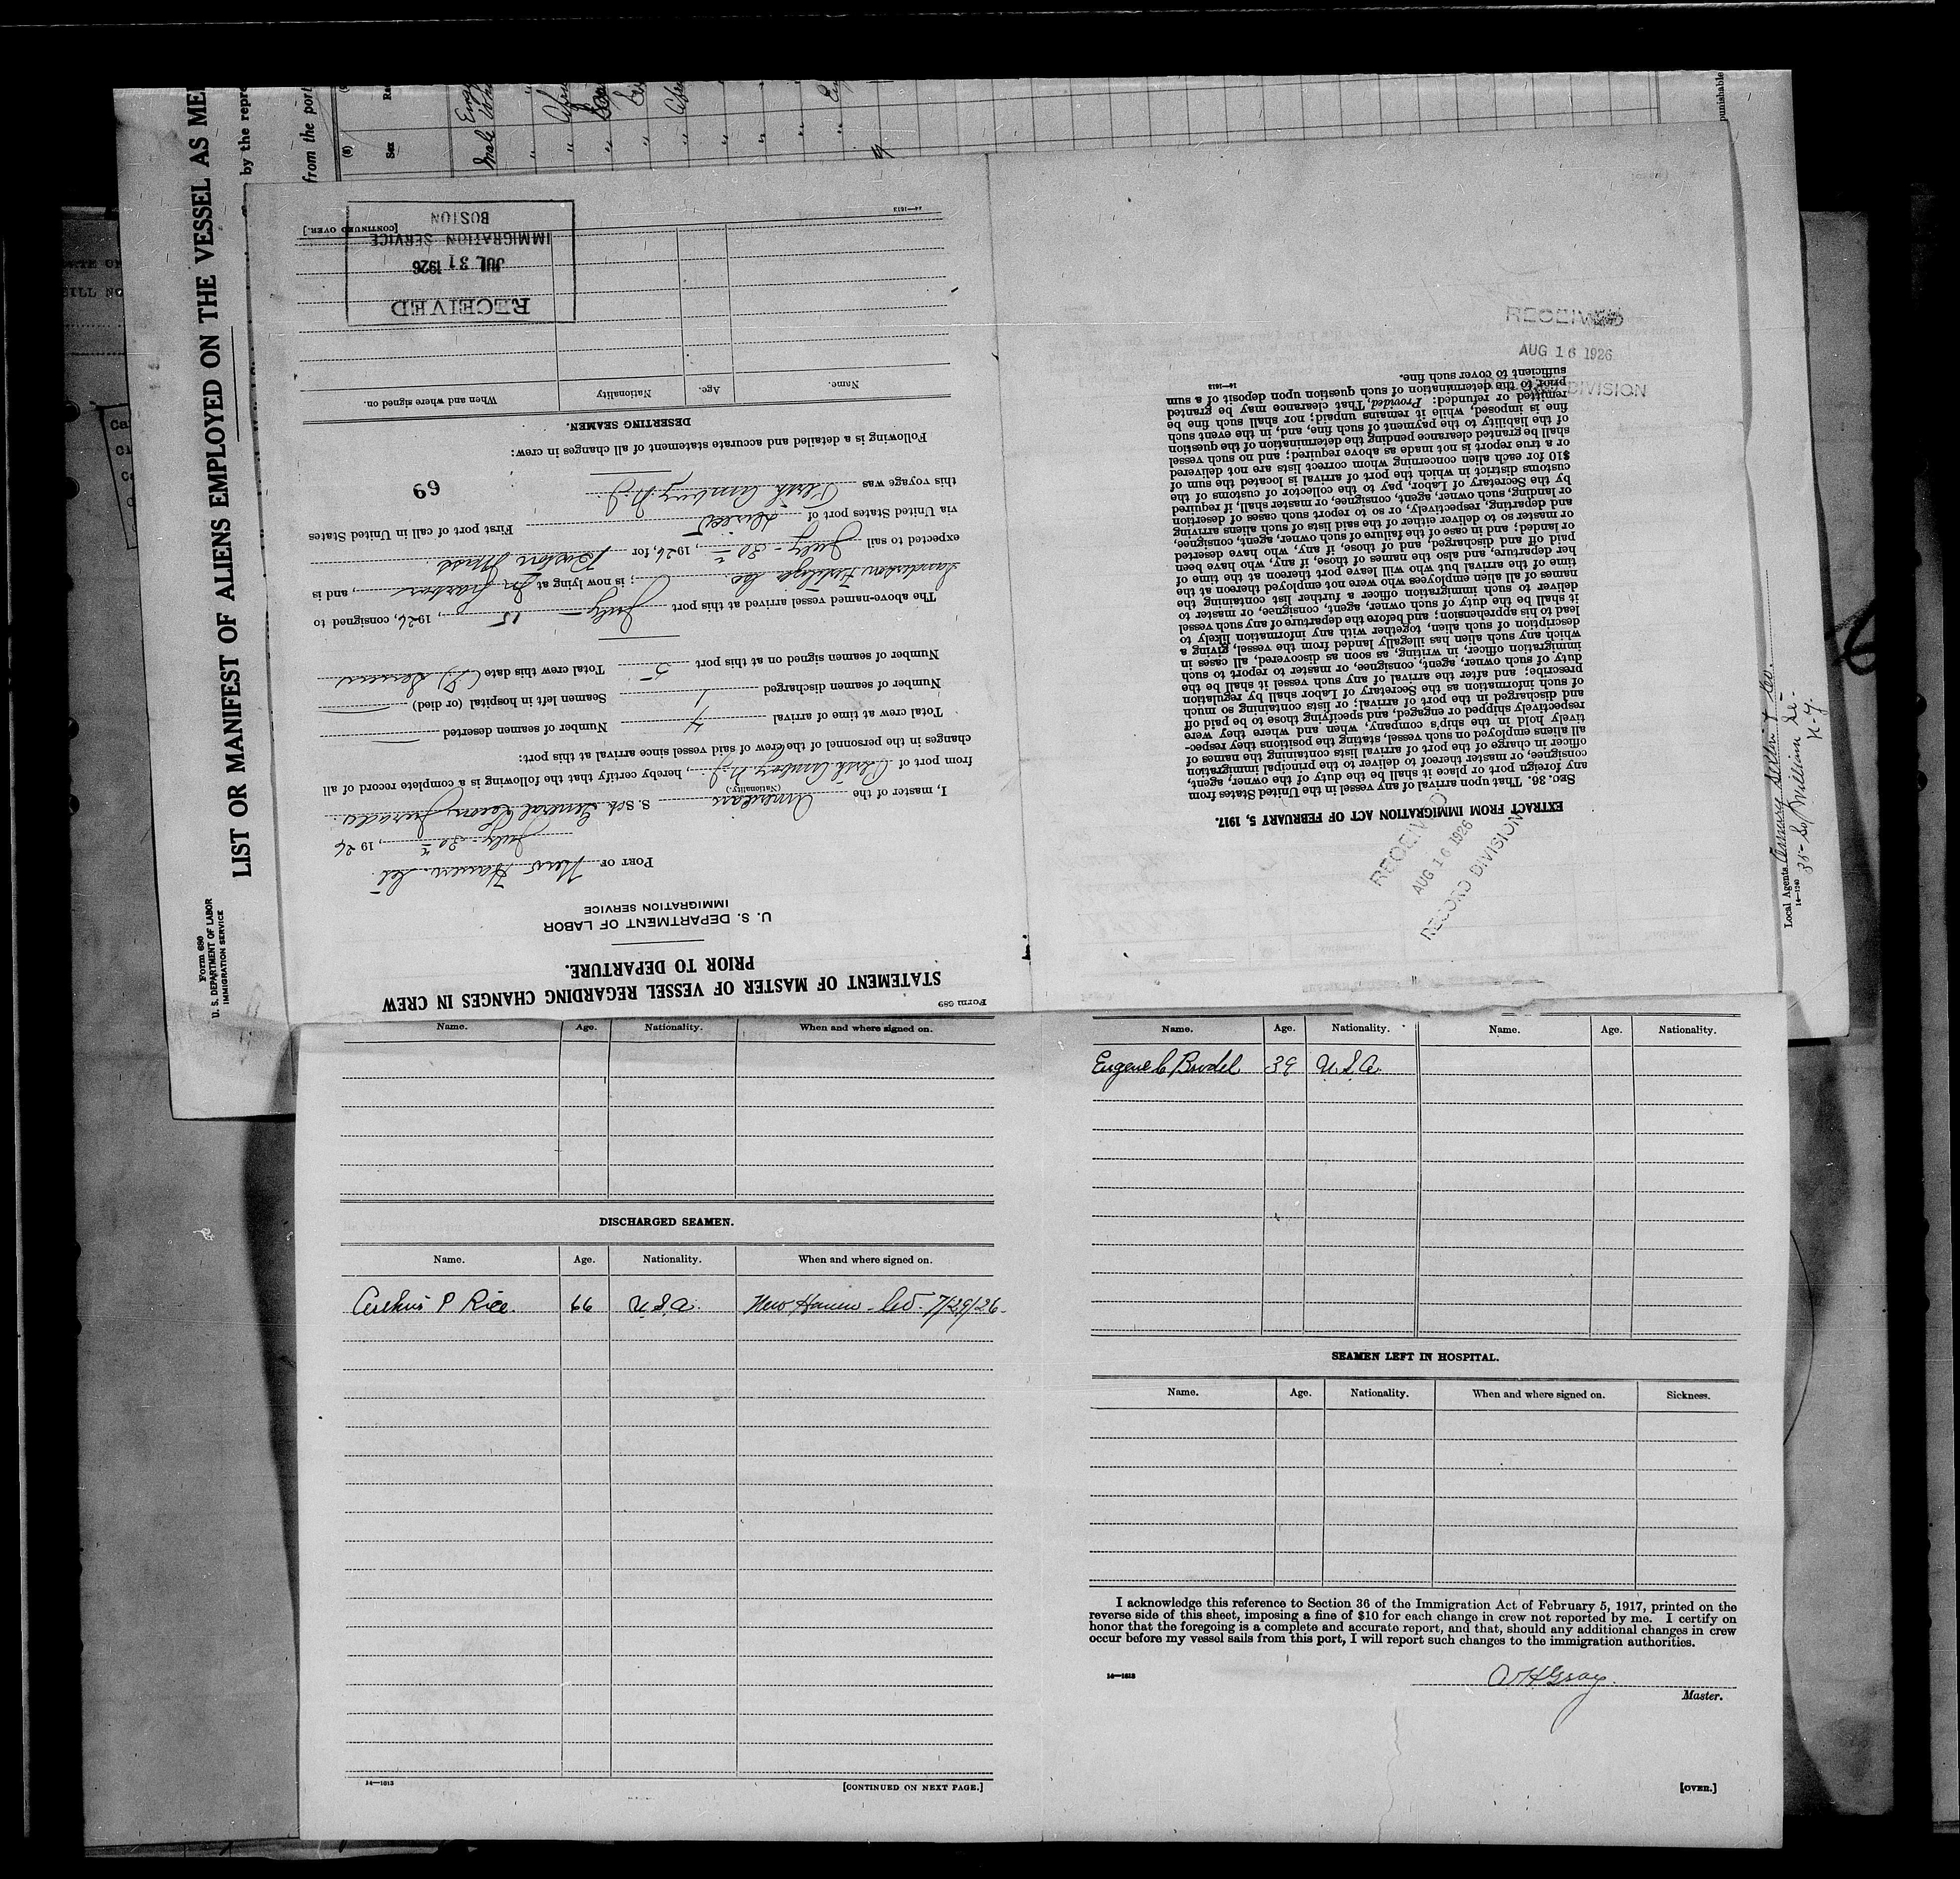 LIST OR MANIFEST OF ALIENS EMPLOYED ON THE VESSEL AS ME
by the repre
from the port
Form 680
U. S. DEPARTMENT OF LABOR
IMMIGRATION SERVICE
Sex
Male
punishable
Local Agents
14—1240
Form 689
STATEMENT OF MASTER OF VESSEL REGARDING CHANGES IN CREW
PRIOR TO DEPARTURE.
U. S. DEPARTMENT OF LABOR
IMMIGRATION SERVICE
PORT OF New Haven Ct.
July 30, 1926
I, master of the American S. Sch General
(Nationality)
from port of Perth Amboy N.J., hereby certify that the following is a complete record of all
changes in the personnel of the crew of said vessel since arrival at this port:
Total crew at time of arrival 4 Number of seamen deserted
Number of seamen discharged 1 Seamen left in hospital (or died)
Number of seamen signed on at this port 5 Total crew this date
The above-named vessel arrived at this port July 15, 1926, consigned to
; is now lying at In Harbor, and is
expected to sail July 30, 1926, for Boston Mass.
via United States port of Direct First port of call in United States
this voyage was Perth Amboy N.J.
69
Following is a detailed and accurate statement of all changes in crew:
DESERTING SEAMEN.
Name. Age. Nationality When and where signed on.
RECEIVED
JUL 31 1926
IMMIGRATION SERVICE
BOSTON
14—1613
[CONTINUED OVER.]
EXTRACT FROM IMMIGRATION ACT OF FEBRUARY 5, 1917.
SEC. 36. That upon arrival of any vessel in the United States from
any foreign port or place it shall be the duty of the owner, agent,
consignee, or master thereof to deliver to the principal immigration
officer in charge of the port of arrival lists containing the names of
all aliens employed on such vessel, stating the positions they respec-
tively hold in the ship's company, when and where they were
respectively shipped or engaged, and specifying those to be paid off
and discharged in the port of arrival; or lists containing so much
of such information as the Secretary of Labor shall by regulation
prescribe; and after the arrival of any such vessel it shall be the
duty of such owner, agent, consignee, or master to report to such
immigration officer, in writing, as soon as discovered, all cases in
which any such alien has illegally landed from the vessel, giving a
description of such alien, together with any information likely to
lead to his apprehension; and before the departure of any such vessel
it shall be the duty of such owner, agent, consignee, or master to
deliver to such immigration officer a further list containing the
names of all alien employees who were not employed thereon at the
time of the arrival but who will leave port thereon at the time of
her departure, and also the names of those, if any, who have been
paid off and discharged, and of those, if any, who have deserted
or landed; and in case of the failure of such owner, agent, consignee,
or master so to deliver either of the said lists of such aliens arriving
and departing, respectively, or so to report such cases of desertion
or landing, such owner, agent, consignee, or master shall, if required
by the Secretary of Labor, pay to the collector of customs of the
customs district in which the port of arrival is located the sum of
$10 for each alien concerning whom correct lists are not delivered
or a true report is not made as above required; and no such vessel
shall be granted clearance pending the determination of the question
of the liability to the payment of such fine, and, in the event such
fine is imposed, while it remains unpaid; nor shall such fine be
remitted or refunded: Provided, That clearance may be granted
prior to the determination of such question upon deposit of a sum
sufficient to cover such fine.
14—1613
RECEIVED
AUG 16 1926
RECORD DIVISION
RECEIVED
AUG 16 1926
RECORD DIVISION
Name. Age. Nationality. When and where signed on.
DISCHARGED SEAMEN.
Name. Age. Nationality. When and where signed on.
P Rice. 66 U S A. New Haven 7/29/26
14—1613
[CONTINUED ON NEXT PAGE.]
Name. Age. Nationality. Name. Age. Nationality.
Eugene 39 U S A.
SEAMEN LEFT IN HOSPITAL.
Name. Age. Nationality. When and where signed on. Sickness.
I acknowledge this reference to Section 36 of the Immigration Act of February 5, 1917, printed on the
reverse side of this sheet, imposing a fine of $10 for each change in crew not reported by me. I certify on
honor that the foregoing is a complete and accurate report, and that, should any additional changes in crew
occur before my vessel sails from this port, I will report such changes to the immigration authorities.
14—1613
Gray
Master.
[OVER.]